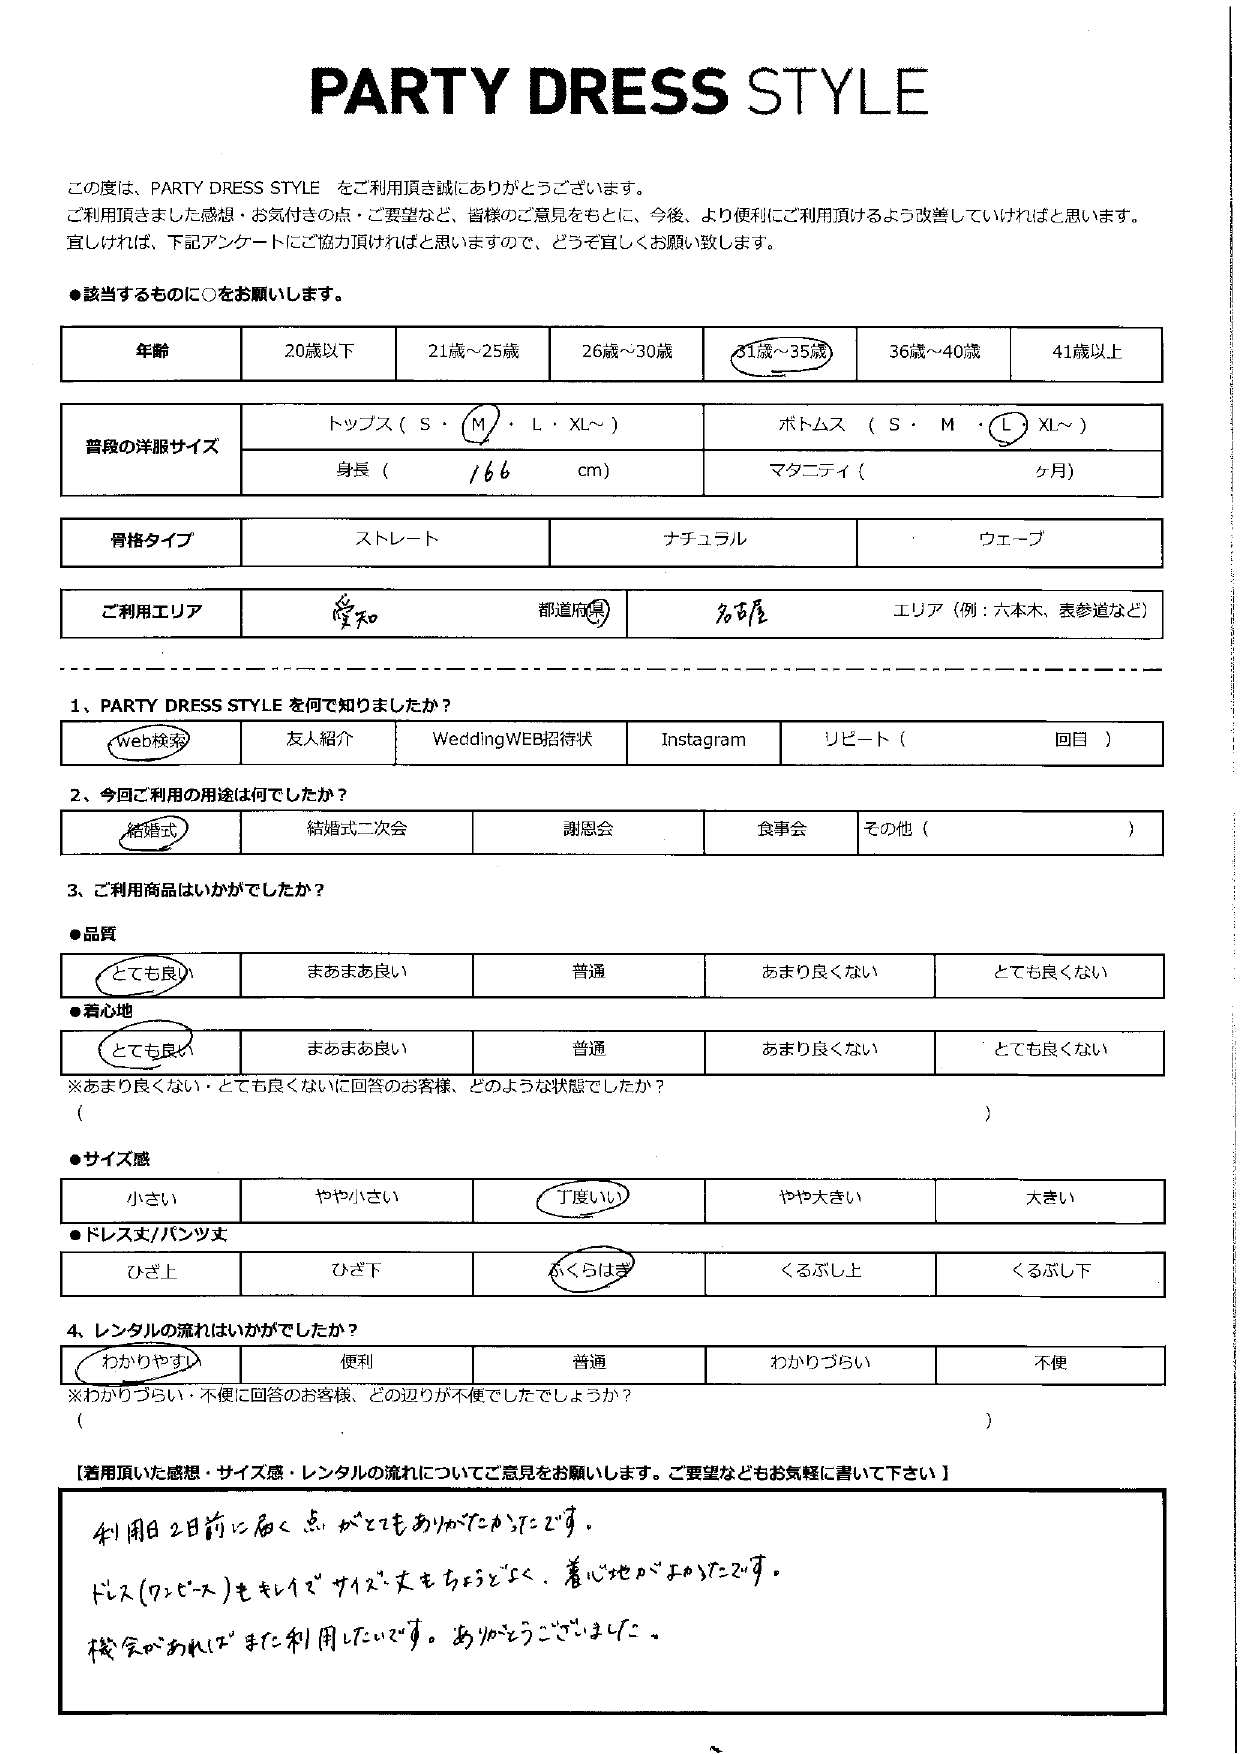 PARTY DRESS STYLE
この度は、PARTY DRESS STYLE をご利用頂き誠にありがとうございます。
ご利用頂きました感想・お気付きの点・ご要望など、皆様のご意見をもとに、今後、より便利にご利用頂けるよう改善していければと思います。
宜しければ、下記アンケートにご協力頂ければと思いますので、どうぞ宜しくお願い致します。
●該当するものに○をお願いします。
年齢 20歳以下 21歳～25歳 26歳～30歳 31歳～35歳 36歳～40歳 41歳以上
普段の洋服サイズ
トップス ( S ・ M ・ L ・ XL～ ) ボトムス ( S ・ M ・ L ・ XL～ )
身長 ( 166 cm) マタニティ ( ヶ月)
骨格タイプ ストレート ナチュラル ウェーブ
ご利用エリア 愛知 都道府県 名古屋 エリア（例：六本木、表参道など）
1、PARTY DRESS STYLE を何で知りましたか？
web検索 友人紹介 WeddingWEB招待状 Instagram リピート ( 回目 )
2、今回ご利用の用途は何でしたか？
結婚式 結婚式二次会 謝恩会 食事会 その他 ( )
3、ご利用商品はいかがでしたか？
●品質
とても良い まあまあ良い 普通 あまり良くない とても良くない
●着心地
とても良い まあまあ良い 普通 あまり良くない とても良くない
※あまり良くない・とても良くないに回答のお客様、どのような状態でしたか？
( )
●サイズ感
小さい やや小さい 丁度いい やや大きい 大きい
●ドレス丈/パンツ丈
ひざ上 ひざ下 ふくらはぎ くるぶし上 くるぶし下
4、レンタルの流れはいかがでしたか？
わかりやすい 便利 普通 わかりづらい 不便
※わかりづらい・不便に回答のお客様、どの辺りが不便でしたでしょうか？
( )
【着用頂いた感想・サイズ感・レンタルの流れについてご意見をお願いします。ご要望などもお気軽に書いて下さい】
利用日2日前に届く点がとてもありがたかったです。
ドレス(ワンピース)もキレイでサイズ・丈もちょうどよく、着心地がよかったです。
機会があればまた利用したいです。ありがとうございました。